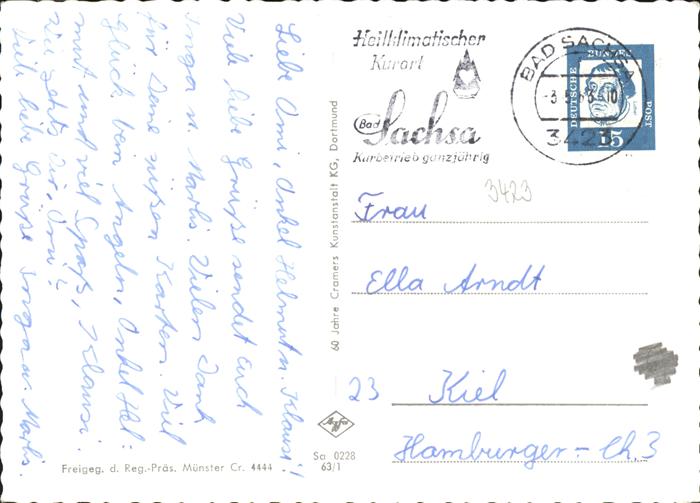 Liebe Omi, Onkel Helmut u. Klausi!
Viele liebe Grüße sendet Euch
Inga u. Marlis. Vielen Dank
für Deine süßen Karten. Viel
Glück beim Angeln, Onkel Hel-
mut und viel Spaß, Klausi.
Wie gehts Dir, Omi?
Viele liebe Grüße Inga u. Marlis.
Heilklimatischer
Kurort
Bad
Sachsa
Kurbetrieb ganzjährig
BAD SACHSA
3423
DEUTSCHE
BUNDES
POST
15
3423
Frau
Ella Arndt
23 Kiel
Hamburger - Ch. 3
60 Jahre Cramers Kunstanstalt KG, Dortmund
Agfa
Sa 0228
63/1
Freigeg. d. Reg.-Präs. Münster Cr. 4444